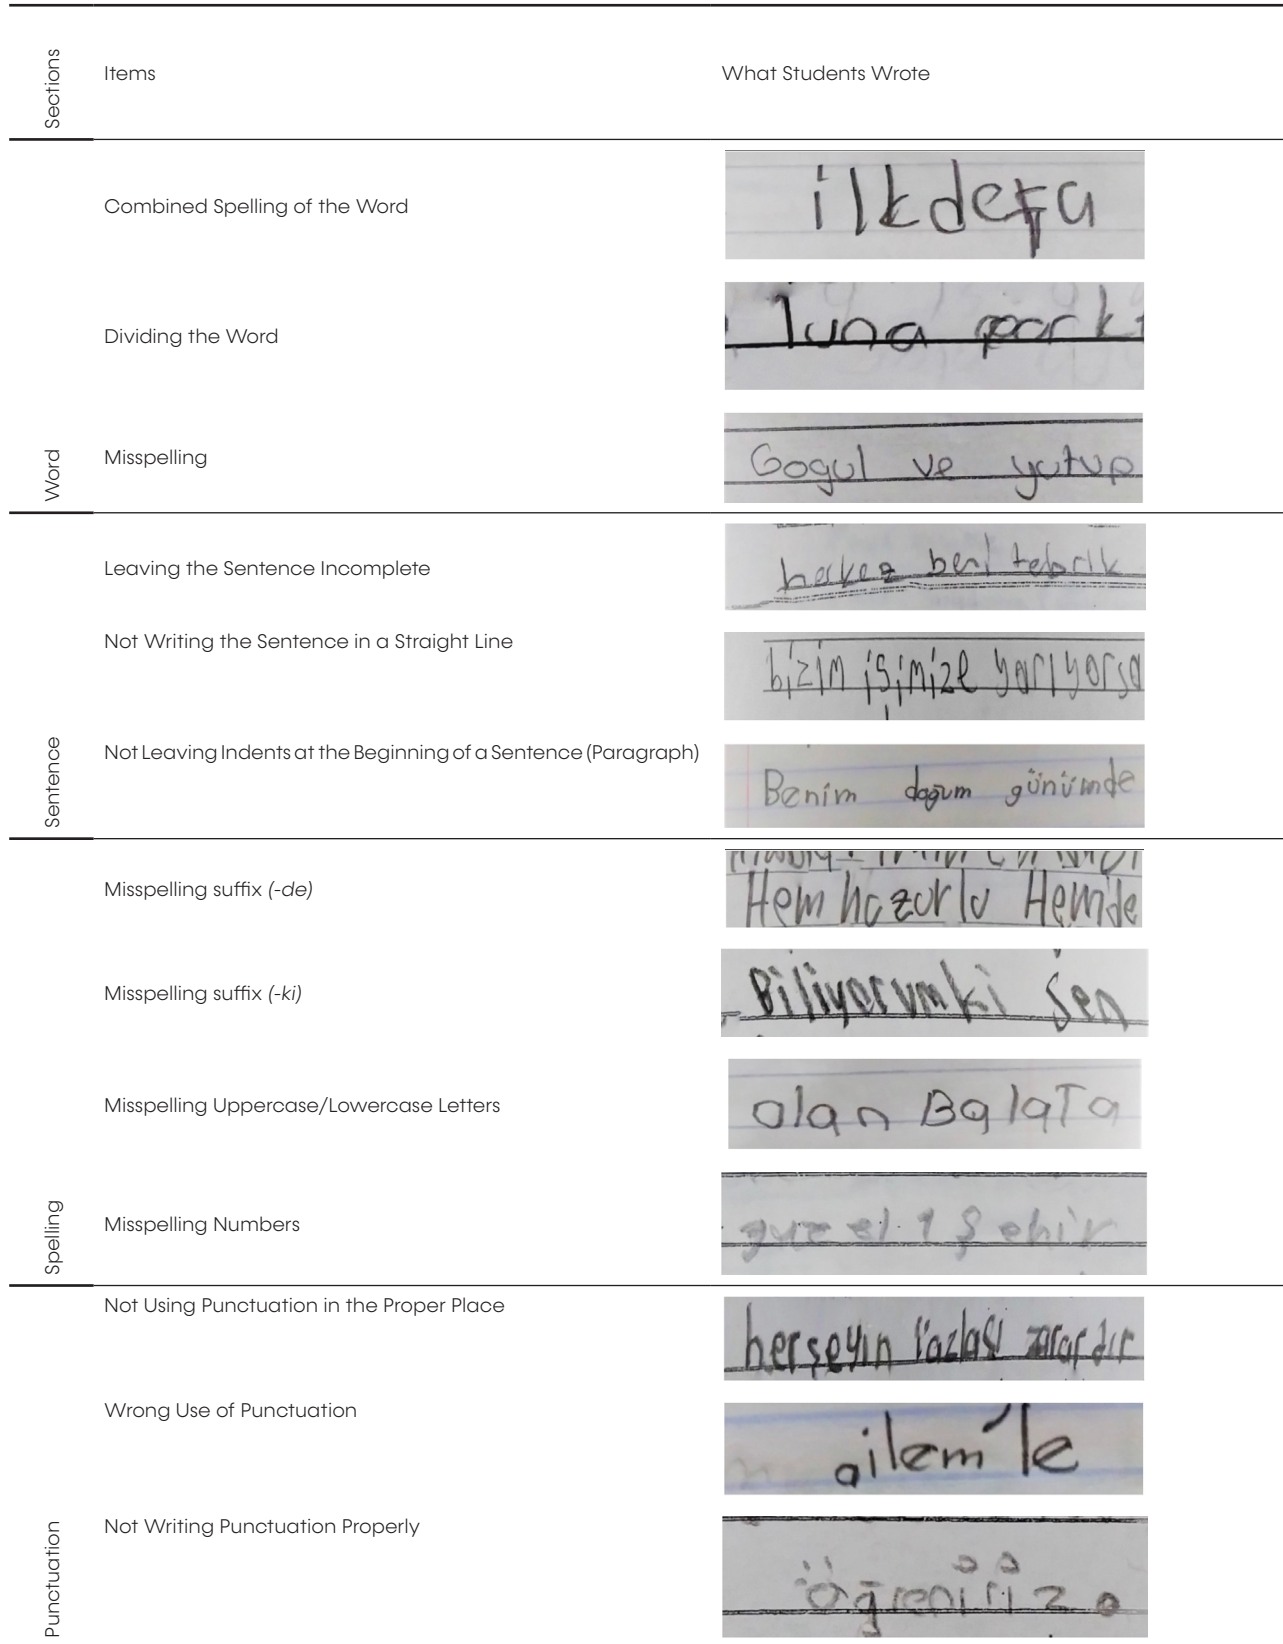 Sections
Items
What Students Wrote
Word
Combined Spelling of the Word
ilkdefa
Dividing the Word
luna park
Misspelling
Gogul ve yutup
Sentence
Leaving the Sentence Incomplete
herkez beni tebrik
Not Writing the Sentence in a Straight Line
bizim işimize yarıyorsa
Not Leaving Indents at the Beginning of a Sentence (Paragraph)
Benim doğum günümde
Spelling
Misspelling suffix (-de)
Hem Hemde
Misspelling suffix (-ki)
Biliyorumki sen
Misspelling Uppercase/Lowercase Letters
olan BalaTa
Misspelling Numbers
guzel 1 şehir
Punctuation
Not Using Punctuation in the Proper Place
herşeyin fazlası zarardır
Wrong Use of Punctuation
ailem'le
Not Writing Punctuation Properly
öğreniriz